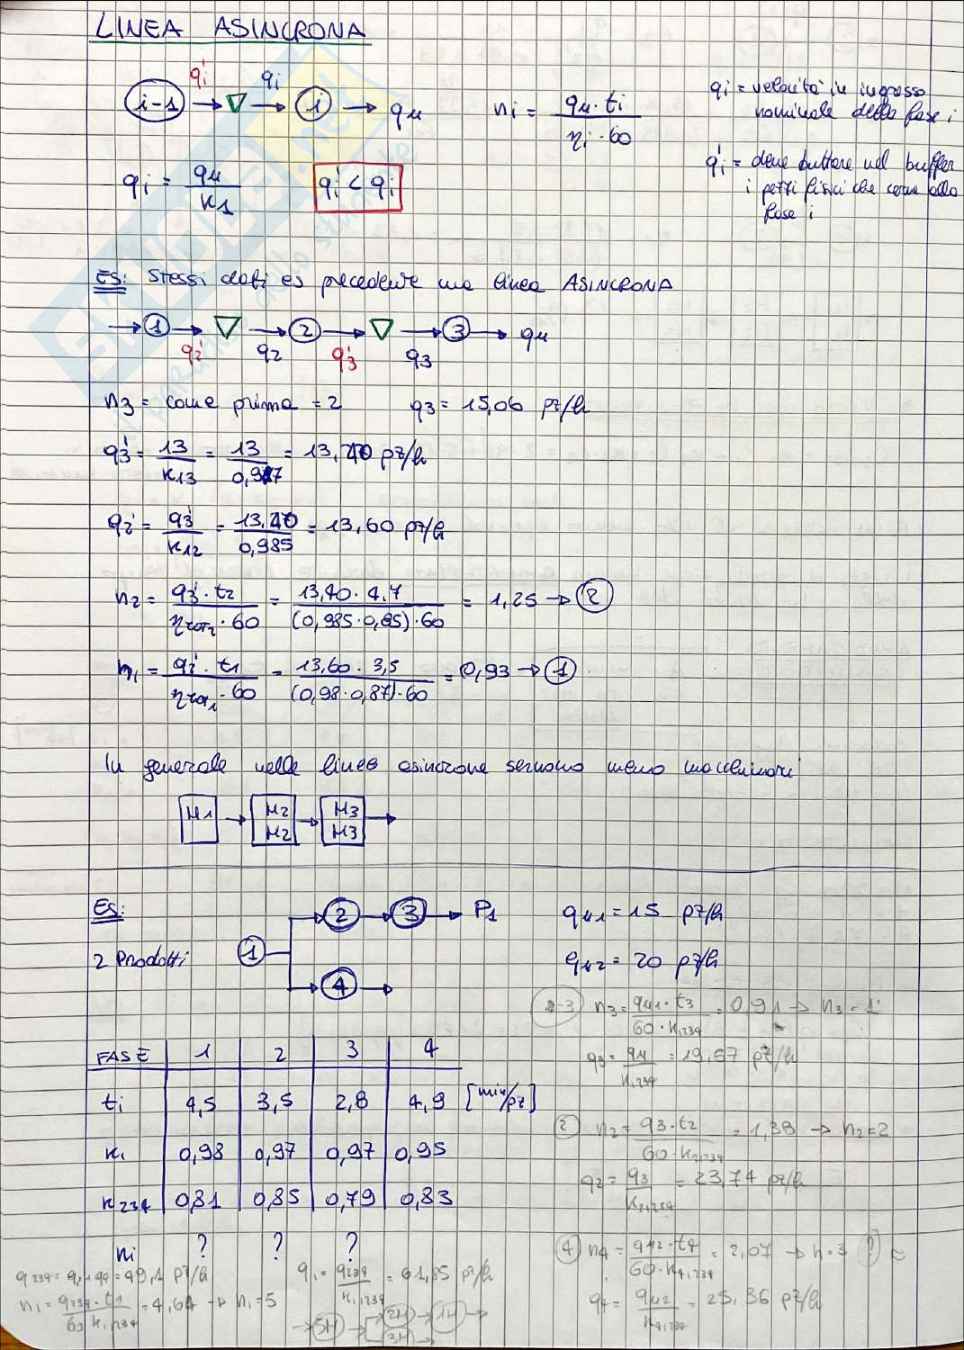 LINEA ASINCRONA
i-1 → q'i ▽ qi → i → qu
ni = qu·ti / ηi·60
qi = velocità in ingresso nominale della fase i
qi = qu / K1
q'i < qi
q'i = deve buttare nel buffer i pezzi fisici che come alla fase i
ES: Stessi dati es precedente ma linea ASINCRONA
→ 1 → ▽ → 2 → ▽ → 3 → qu
q'2 q2 q'3 q3
n3 = come prima = 2 q3 = 15,06 pz/h
q'3 = 13 / K13 = 13 / 0,97 = 13,40 pz/h
q'2 = q'3 / K12 = 13,40 / 0,985 = 13,60 pz/h
n2 = q'3·t2 / ηtot2·60 = 13,40·4,7 / (0,985·0,85)·60 = 1,25 → 2
n1 = q'2·t1 / ηtot1·60 = 13,60·3,5 / (0,98·0,87)·60 = 0,93 → 1
In generale nelle linee asincrone servono meno macchinari
M1 → M2 M2 → M3 M3 →
ES:
2 Prodotti
1 → 2 → 3 → P1
→ 4 →
qu1 = 15 pz/h
qu2 = 20 pz/h
n3 = qu1·t3 / 60·K1,234 = 0,91 → n3 = 1
q3 = qu / K1,234 = 19,57 pz/h
FASE 1 2 3 4
ti 4,5 3,5 2,8 4,9 [min/pz]
K1 0,98 0,97 0,97 0,95
K234 0,81 0,85 0,79 0,83
ni ? ? ?
2 n2 = q3·t2 / 60·K1,234 = 1,38 → n2=2
q2 = q3 / K1,234 = 23,74 pz/h
4 n4 = qu2·t4 / 60·K4,234 = 2,07 → n=3 ? ≈
q4 = qu2 / K4,234 = 25,36 pz/h
q234 = q2+q4 = 49,1 pz/h
n1 = q234·t1 / 60 K1,234 = 4,64 → n1=5
q1 = q234 / K1,234 = 61,85 pz/h
→ 5M → 2M → 1M →